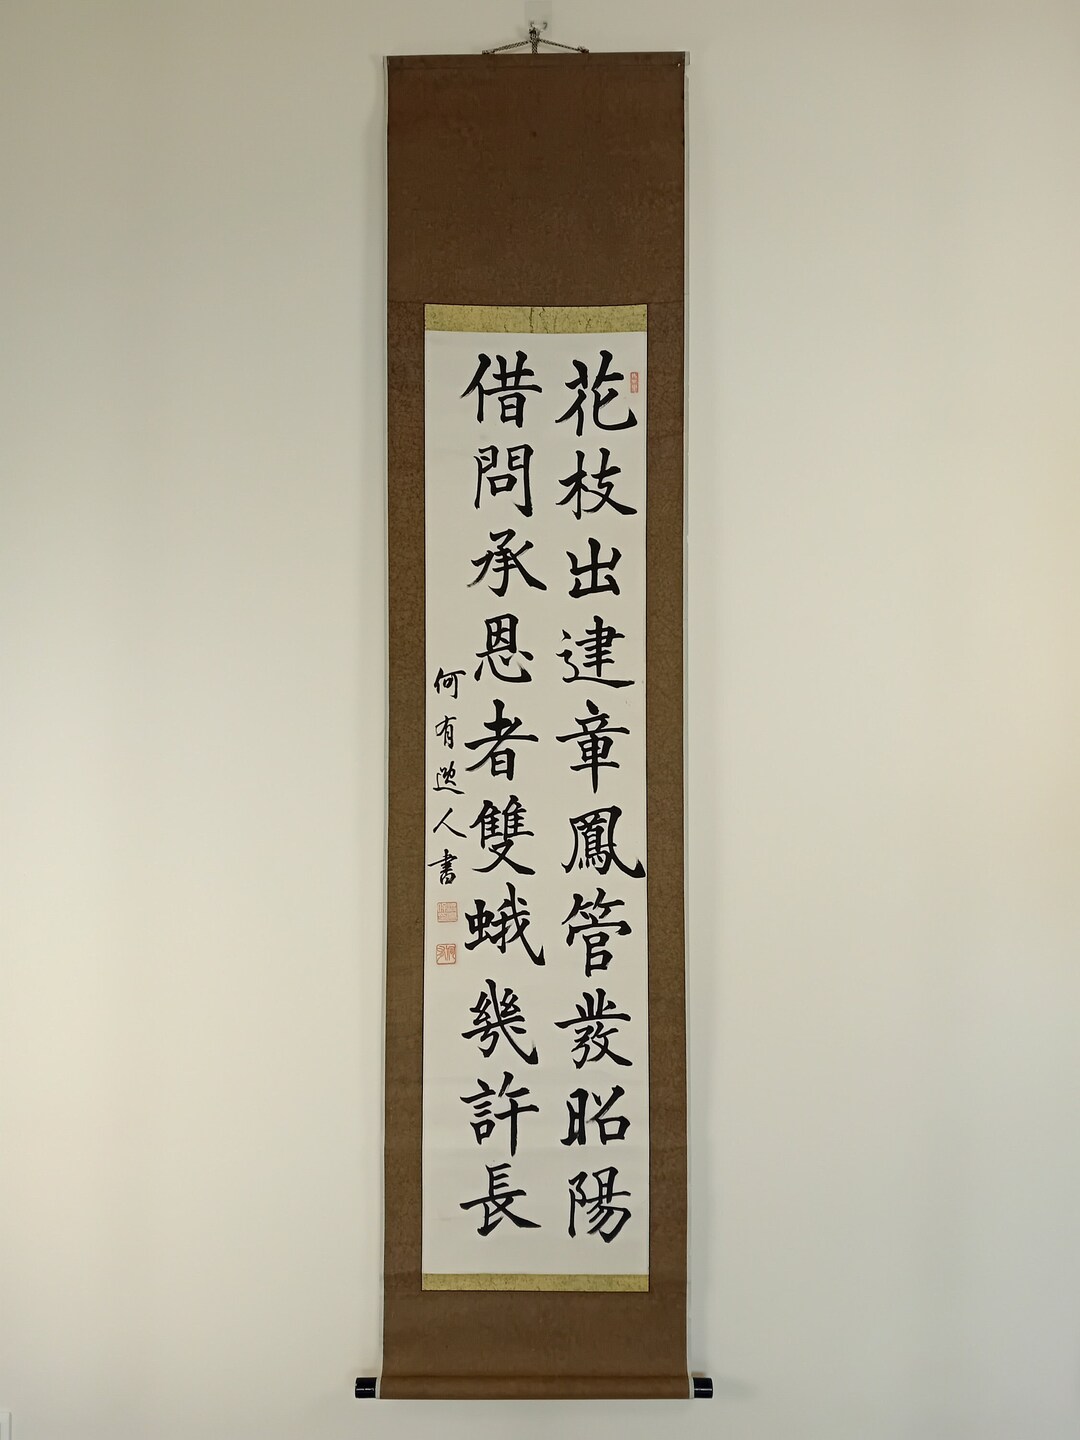 花枝出建章鳳管發昭陽
借問承恩者雙蛾幾許長
何有逸人書